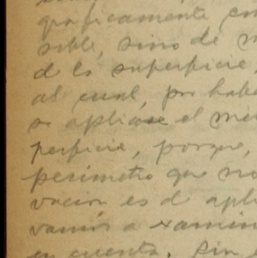 gráficamente con
sible, sino de m
d ls superficie,
al cual, por habe
se aplicase el mé
perficie, porque,
perímetro que no
vacion es d apli
vamos a examin
en cuenta. Sin